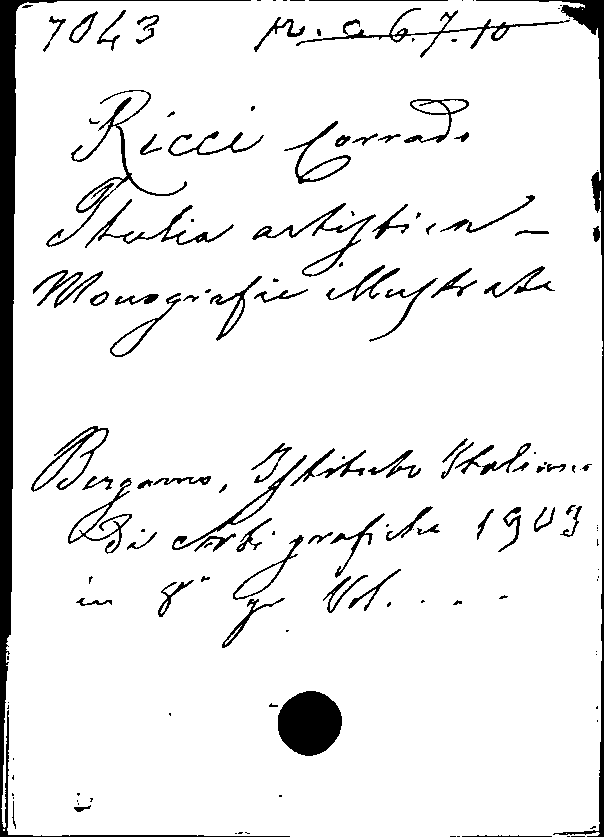 7043 pr. a 6.7.10
Ricci Corrado
Italia artistica –
Monografie illustrate
Bergamo, Istituto Italiano
Di Arti grafiche 1903
in 8° gr Vol. . . .